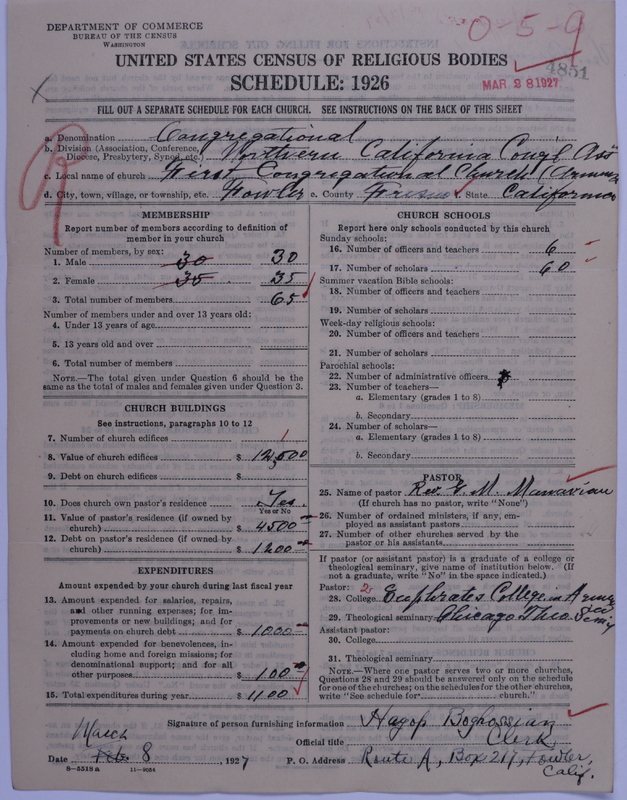 DEPARTMENT OF COMMERCE
BUREAU OF THE CENSUS
WASHINGTON
0-5-9
4851
UNITED STATES CENSUS OF RELIGIOUS BODIES
SCHEDULE: 1926
MAR 28 1927
FILL OUT A SEPARATE SCHEDULE FOR EACH CHURCH. SEE INSTRUCTIONS ON THE BACK OF THIS SHEET
a. Denomination Congregational
b. Division (Association, Conference, Diocese, Presbytery, Synod, etc.) Northern California Cong'l Ass'n
c. Local name of church First Congregational Church (Armenia
d. City, town, village, or township, etc. Fowler e. County Fresno f. State California
MEMBERSHIP
Report number of members according to definition of
member in your church
Number of members, by sex:
1. Male 30 30
2. Female 35 35
3. Total number of members 65
Number of members under and over 13 years old:
4. Under 13 years of age
5. 13 years old and over
6. Total number of members
NOTE.—The total given under Question 6 should be the
same as the total of males and females given under Question 3.
CHURCH BUILDINGS
See instructions, paragraphs 10 to 12
7. Number of church edifices 1
8. Value of church edifices $ 12,500
9. Debt on church edifices $
10. Does church own pastor's residence Yes.
Yes or No
11. Value of pastor's residence (if owned by
church) $ 4500
12. Debt on pastor's residence (if owned by
church) $ 1200
EXPENDITURES
Amount expended by your church during last fiscal year
13. Amount expended for salaries, repairs,
and other running expenses; for im-
provements or new buildings; and for
payments on church debt $ 1000
14. Amount expended for benevolences, in-
cluding home and foreign missions; for
denominational support; and for all
other purposes $ 100
15. Total expenditures during year $ 1100
CHURCH SCHOOLS
Report here only schools conducted by this church
Sunday schools:
16. Number of officers and teachers 6
17. Number of scholars 60
Summer vacation Bible schools:
18. Number of officers and teachers
19. Number of scholars
Week-day religious schools:
20. Number of officers and teachers
21. Number of scholars
Parochial schools:
22. Number of administrative officers
23. Number of teachers—
a. Elementary (grades 1 to 8)
b. Secondary
24. Number of scholars—
a. Elementary (grades 1 to 8)
b. Secondary
PASTOR
25. Name of pastor Rev. G. M. Manavian
(If church has no pastor, write "None")
26. Number of ordained ministers, if any, em-
ployed as assistant pastors
27. Number of other churches served by the
pastor or his assistants
If pastor (or assistant pastor) is a graduate of a college or
theological seminary, give name of institution below. (If
not a graduate, write "No" in the space indicated.)
Pastor: 2
28. College Euphrates College in Armenia
29. Theological seminary Chicago Theo. Sem'y
Assistant pastor:
30. College
31. Theological seminary
NOTE.—Where one pastor serves two or more churches,
Questions 28 and 29 should be answered only on the schedule
for one of the churches; on the schedules for the other churches,
write "See schedule for church."
Signature of person furnishing information Hagop Boghossian
Official title Clerk
March
Date Feb. 8, 1927 P. O. Address Route A, Box 217, Fowler,
Calif.
8—5518 a 11—9054